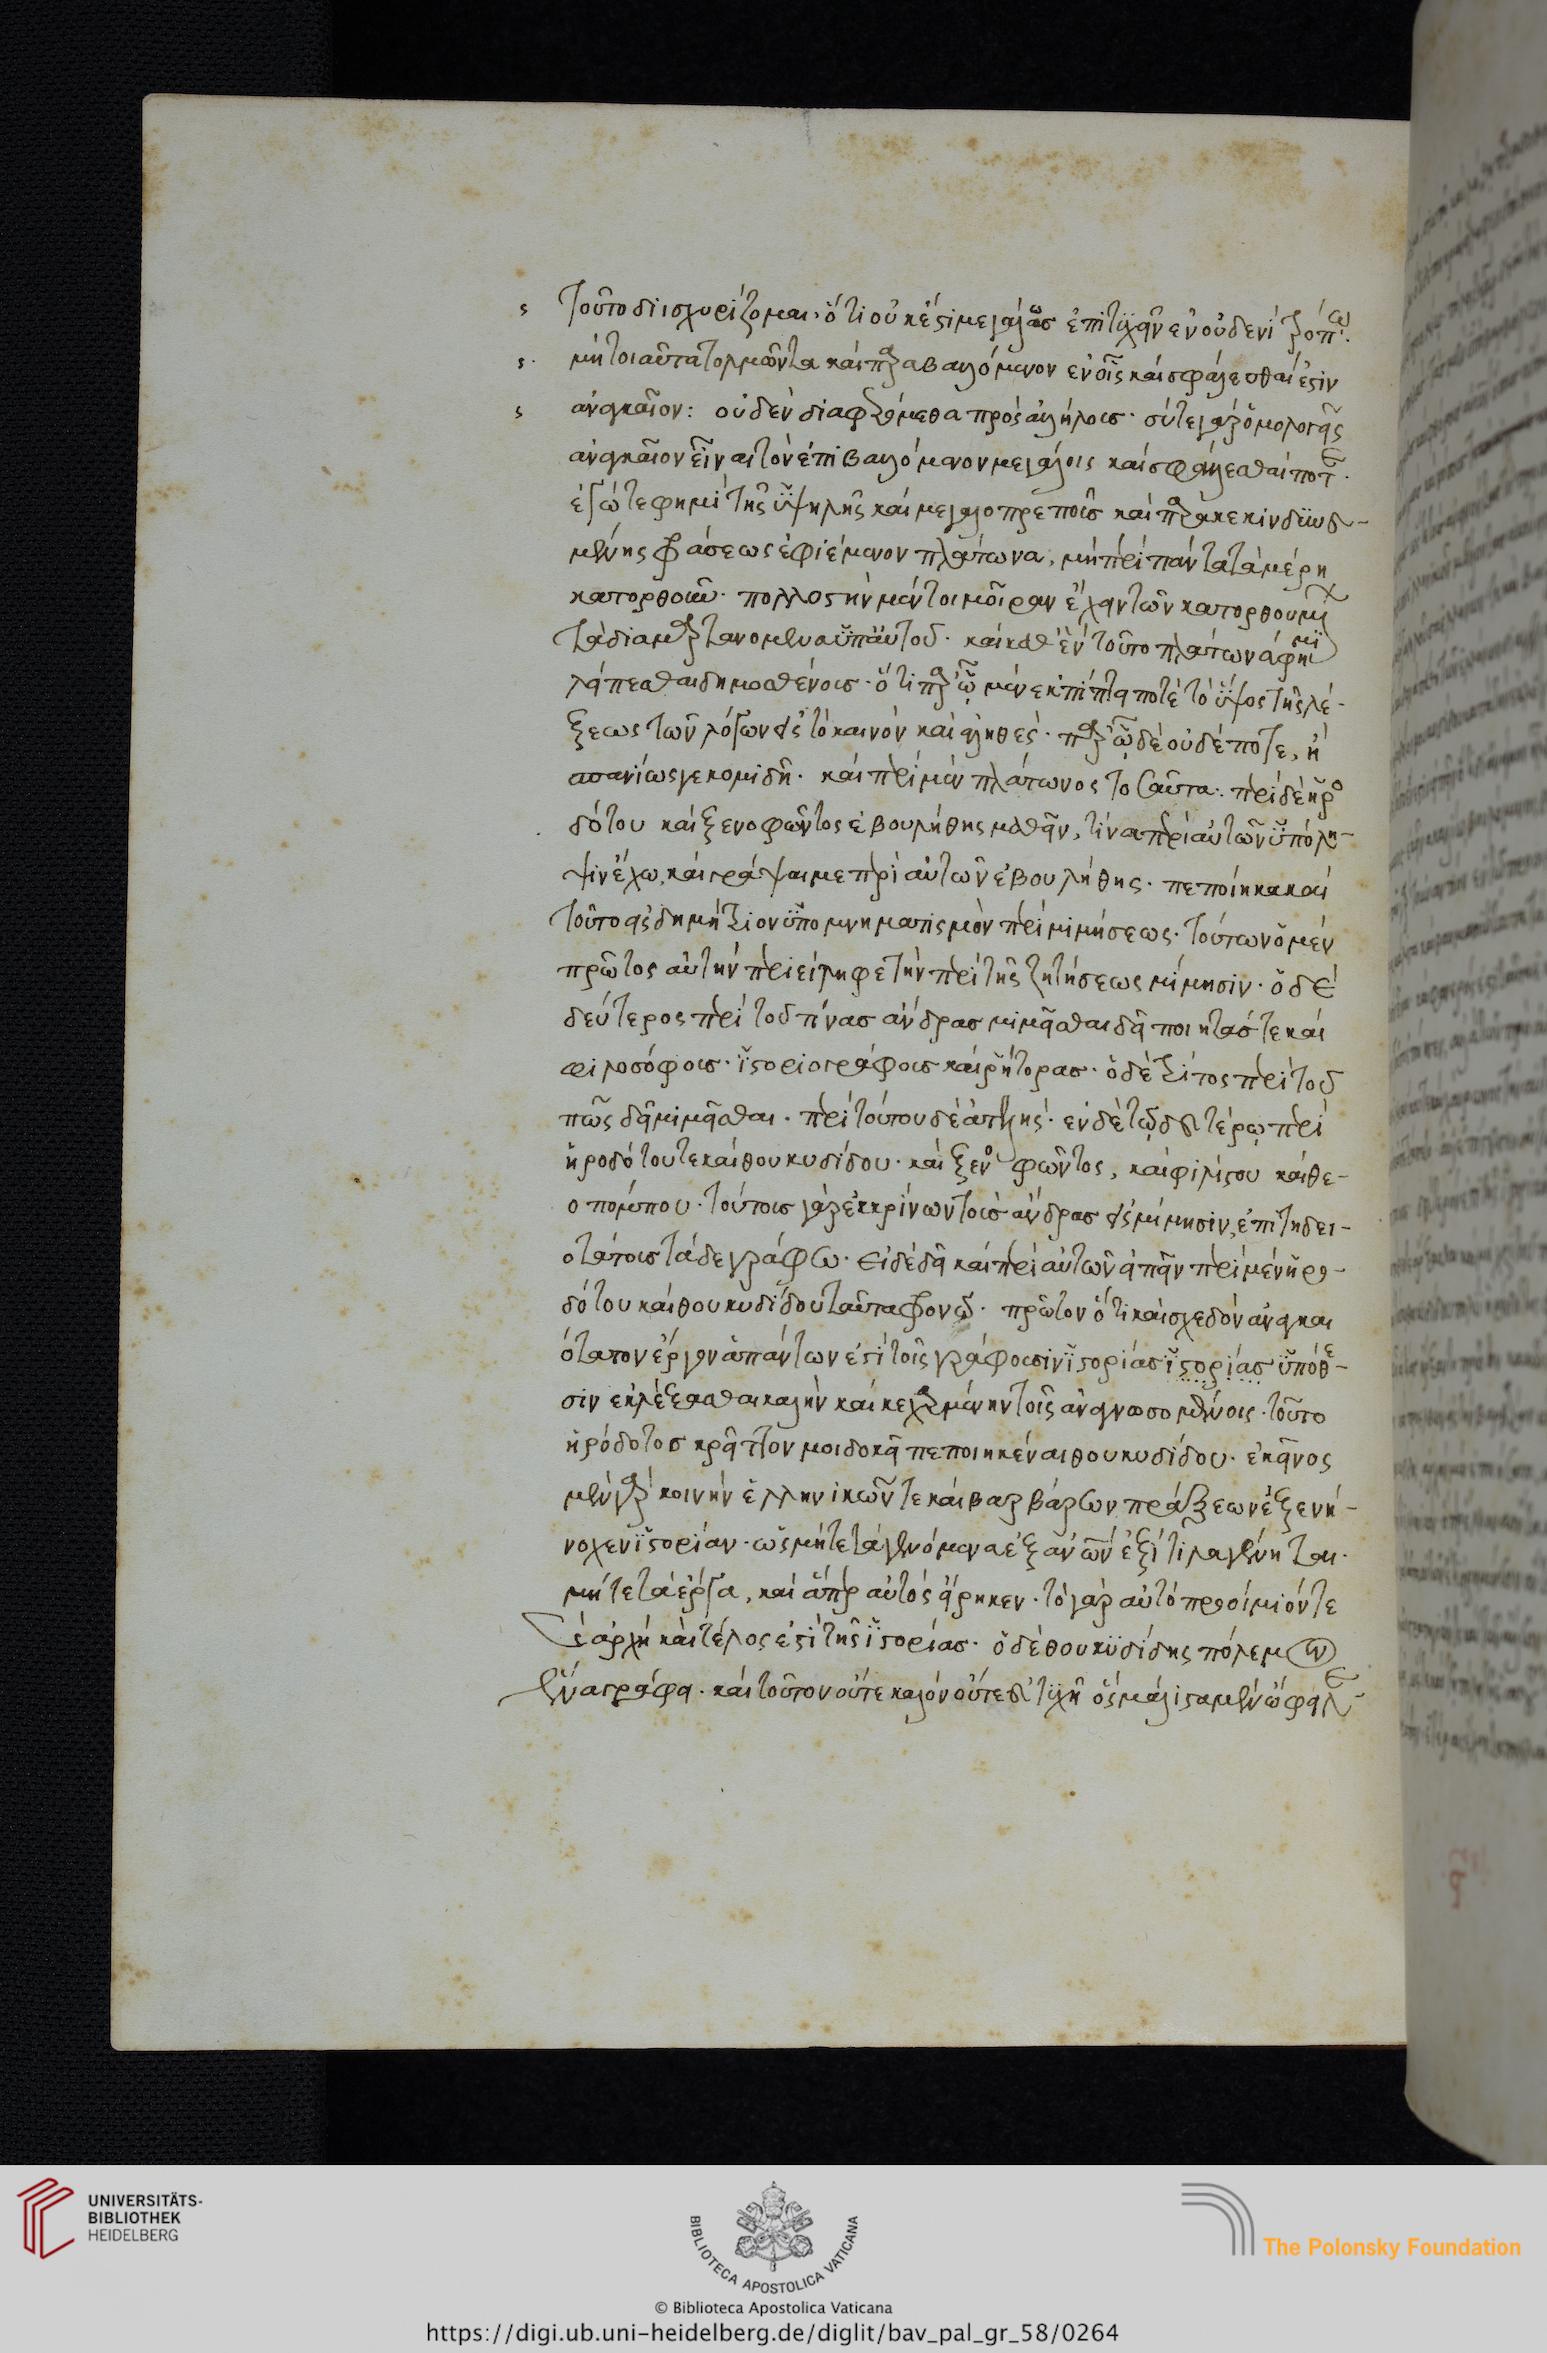 τοῦτο διισχυρίζομαι· ὅτι οὐκ ἔστι μεγάλως ἐπιτυχεῖν ἐν οὐδενὶ τρόπω·
μὴ τοιαῦτα τολμῶντα καὶ παραβαλλόμενον ἐν οἷς καὶ σφάλεσθαί ἐστιν
ἀναγκαῖον: οὐδὲν διαφερόμεθα πρὸς ἀλλήλους· σύ τε γὰρ ὁμολογεῖς
ἀναγκαῖον εἶναι τὸν ἐπιβαλλόμενον μεγάλοις καὶ σφάλλεσθαί ποτε·
ἐγώ τε φημὶ τῆς ὑψηλῆς καὶ μεγαλοπρεποῦς καὶ παρακεκινδυνευ-
μένης φράσεως ἐφιέμενον πλάτωνα, μὴ περὶ πάντα τὰ μέρη
κατορθοῦν· πολλοστὴν μέντοι μοῖραν ἔχειν τῶν κατορθουμένων
τὰ διαμαρτανόμενα ὑπ' αὐτοῦ· καὶ καθ' ἓν τοῦτο πλάτωνά φημι
λείπεσθαι δημοσθένους· ὅτι παρ' ᾧ μὲν ἐκπίπτει ποτὲ τὸ ὕψος τῆς λέ-
ξεως τῶν λόγων εἰς τὸ καινὸν καὶ ἀληθές· παρ' ᾧ δὲ οὐδέποτε, ἢ
σπανίως γε κομιδῆ· καὶ περὶ μὲν πλάτωνος τοσαῦτα· περὶ δὲ ἡρο
δότου καὶ ξενοφῶντος ἐβουλήθης μαθεῖν, τίνα περὶ αὐτῶν ὑπόλη-
ψιν ἔχω, καὶ γράψαι με περὶ αὐτῶν ἐβουλήθης· πεποίηκα καὶ
τοῦτο εἰς δημήτριον ὑπομνηματισμὸν περὶ μιμήσεως· τούτων ὁ μὲν
πρῶτος αὐτὴν περιείληφε τὴν περὶ τῆς ζητήσεως μίμησιν· ὁ δὲ
δεύτερος περὶ τοῦ τίνας ἄνδρας μιμεῖσθαι δεῖ ποιητάς τε καὶ
φιλοσόφους· ἱστοριογράφους καὶ ῥήτορας· ὁ δὲ τρίτος περὶ τοῦ
πῶς δεῖ μιμεῖσθαι· περὶ τούτου δὲ ἀτελής· ἐν δὲ τῷ δευτέρῳ περὶ
ἡροδότου τε καὶ θουκυδίδου· καὶ ξενοφῶντος, καὶ φιλίστου καὶ θε-
οπόμπου· τούτους γὰρ ἐκκρίνων τοὺς ἄνδρας εἰς μίμησιν, ἐπιτηδει-
οτάτους τάδε γράφω· εἰ δὲ δεῖ καὶ περὶ αὐτῶν εἰπεῖν περὶ μὲν ἡρο-
δότου καὶ θουκυδίδου ταῦτα φρονῶ· πρῶτον ὅτι καὶ σχεδὸν ἀναγκαι
ότατον ἔργον ἁπάντων ἐστὶ τοῖς γράφουσιν ἱστορίας ἱστορίας ὑπόθε-
σιν ἐκλέξασθαι καλὴν καὶ κεχαρισμένην τοῖς ἀναγνωσομένοις· τοῦτο
ἡρόδοτος κρεῖττόν μοι δοκεῖ πεποιηκέναι θουκυδίδου· ἐκεῖνος
μὲν γὰρ κοινὴν ἑλληνικῶν τε καὶ βαρβάρων πράξεων ἐξενή-
νοχεν ἱστορίαν· ὡς μήτε τὰ γενόμενα ἐξ ἀνων ἐξίτηλα γένηται·
μήτε τὰ ἔργα, καὶ ἅπερ αὐτὸς εἴρηκεν· τὸ γὰρ αὐτὸ προοίμιόν τε
ἐ ἀρχὴ καὶ τέλος ἐστὶ τῆς ἱστορίας· ὁ δὲ θουκυδίδης πόλεμον
ἕνα γράφει· καὶ τοῦτον οὔτε καλὸν οὔτε εὐτυχῆ ὃς μάλιστα μὲν ὤφειλε
UNIVERSITÄTS-
BIBLIOTHEK
HEIDELBERG
BIBLIOTECA APOSTOLICA VATICANA
The Polonsky Foundation
© Biblioteca Apostolica Vaticana
https://digi.ub.uni-heidelberg.de/diglit/bav_pal_gr_58/0264